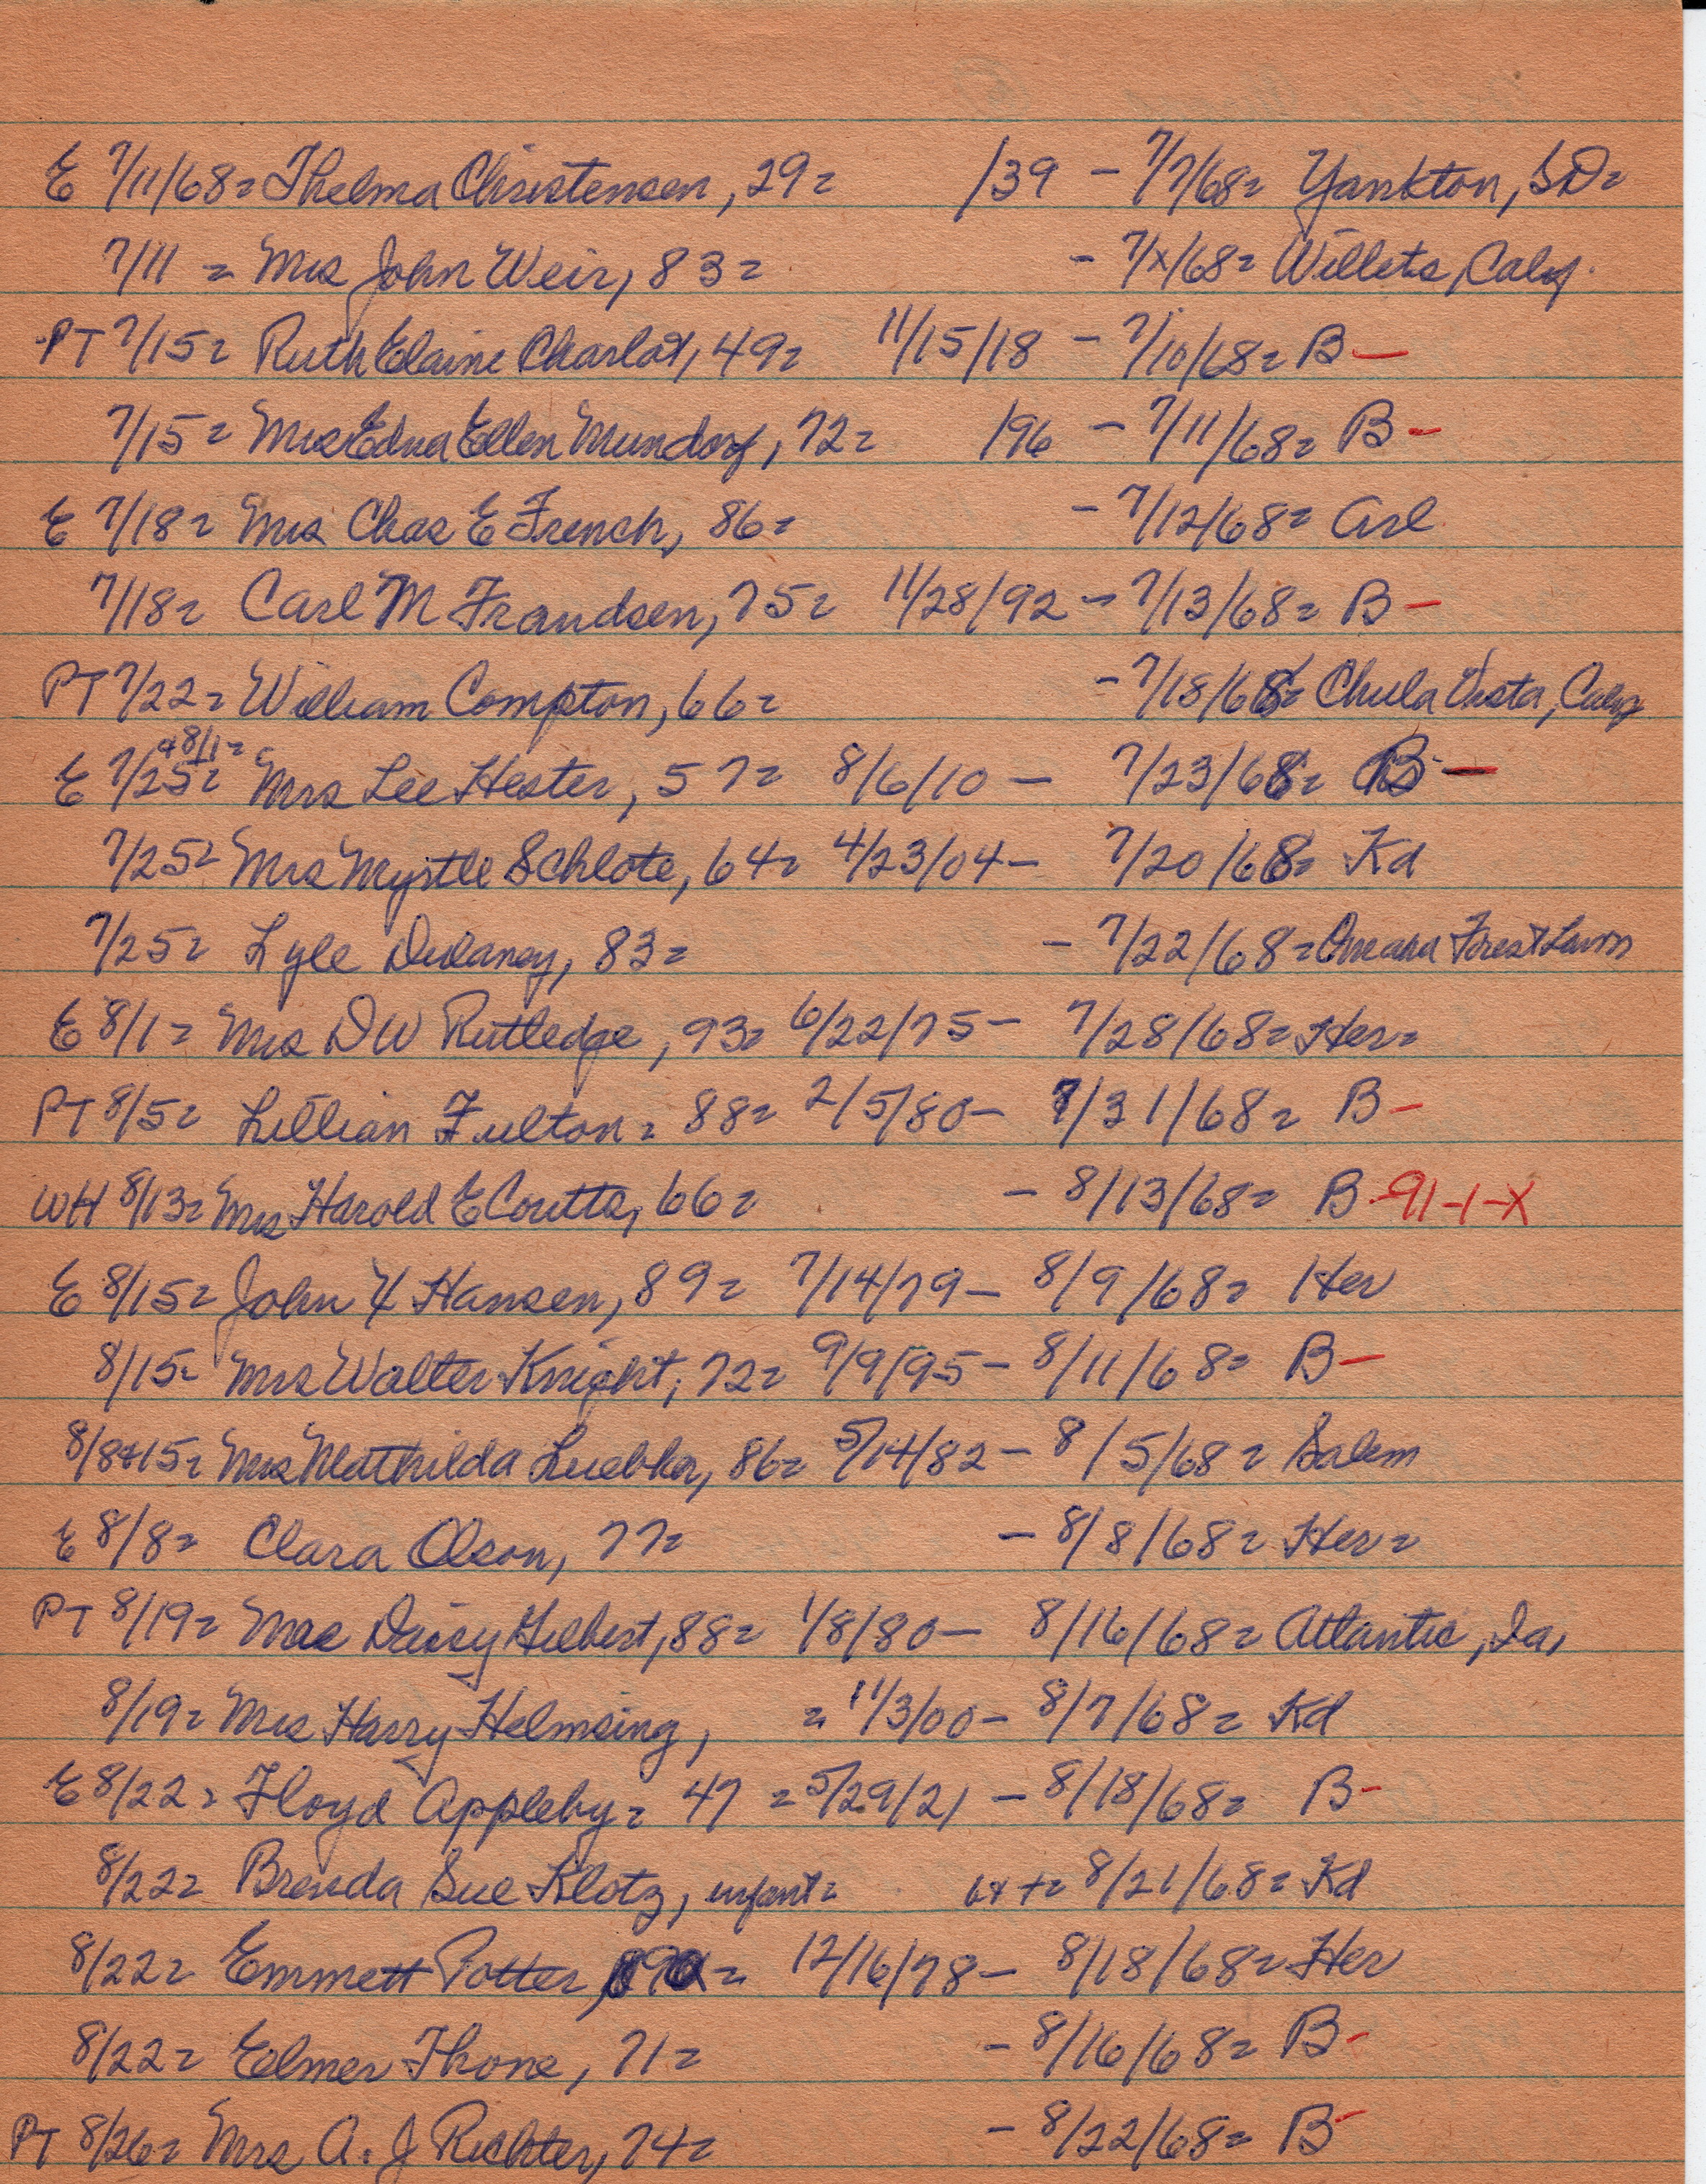 E 7/11/68= Thelma Christensen, 29= /39 - 7/7/68= Yankton, SD=
7/11 = Mrs John Weir, 83= - 7/x/68= Willets, Calif.
PT 7/15= Ruth Elaine Charlat, 49= 11/15/18 - 7/10/68= B -
7/15= Mrs Edna Ellen Mundorf, 72= /96 - 7/11/68= B -
E 7/18= Mrs Chas E French, 86= - 7/12/68= Arl
7/18= Carl M Frandsen, 75= 11/28/92 - 7/13/68= B -
PT 7/22= William Compton, 66= - 7/18/68= Chula Vista, Calif
& 8/1=
E 7/25= Mrs Lee Hester, 57= 8/6/10 - 7/23/68= B -
7/25= Mrs Myrtle Schlote, 64= 4/23/04 - 7/20/68= Kd
7/25= Lyle Dulaney, 83= - 7/22/68= Omaha Forest Lawn
E 8/1= Mrs DW Rutledge, 93= 6/22/75 - 7/28/68= Her=
PT 8/5= Lillian Fulton= 88= 2/5/80 - 7/31/68= B -
WH 8/13= Mrs Harold E Coutts, 66= - 8/13/68= B -91-1-X
E 8/15= John Y Hansen, 89= 7/14/79 - 8/9/68= Her
8/15= Mrs Walter Knight, 72= 9/9/95 - 8/11/68= B -
8/8&15= Mrs Mathilda Luebker, 86= 5/14/82 - 8/5/68= Salem
E 8/8= Clara Olson, 77= - 8/8/68= Her=
PT 8/19= Mrs Daisy Gilbert, 88= 1/8/80 - 8/16/68= Atlantic, Ia,
8/19= Mrs Harry Helmsing, = 11/3/00 - 8/7/68= Kd
E 8/22= Floyd Appleby= 47 = 5/29/21 - 8/18/68= B -
8/22= Brenda Sue Klotz, infant= 8/21/68= Kd
8/22= Emmett Potter, 89= 12/16/78 - 8/18/68= Her
8/22= Elmer Thone, 71= - 8/16/68= B -
PT 8/26= Mrs A. J Richter, 74= - 8/22/68= B -